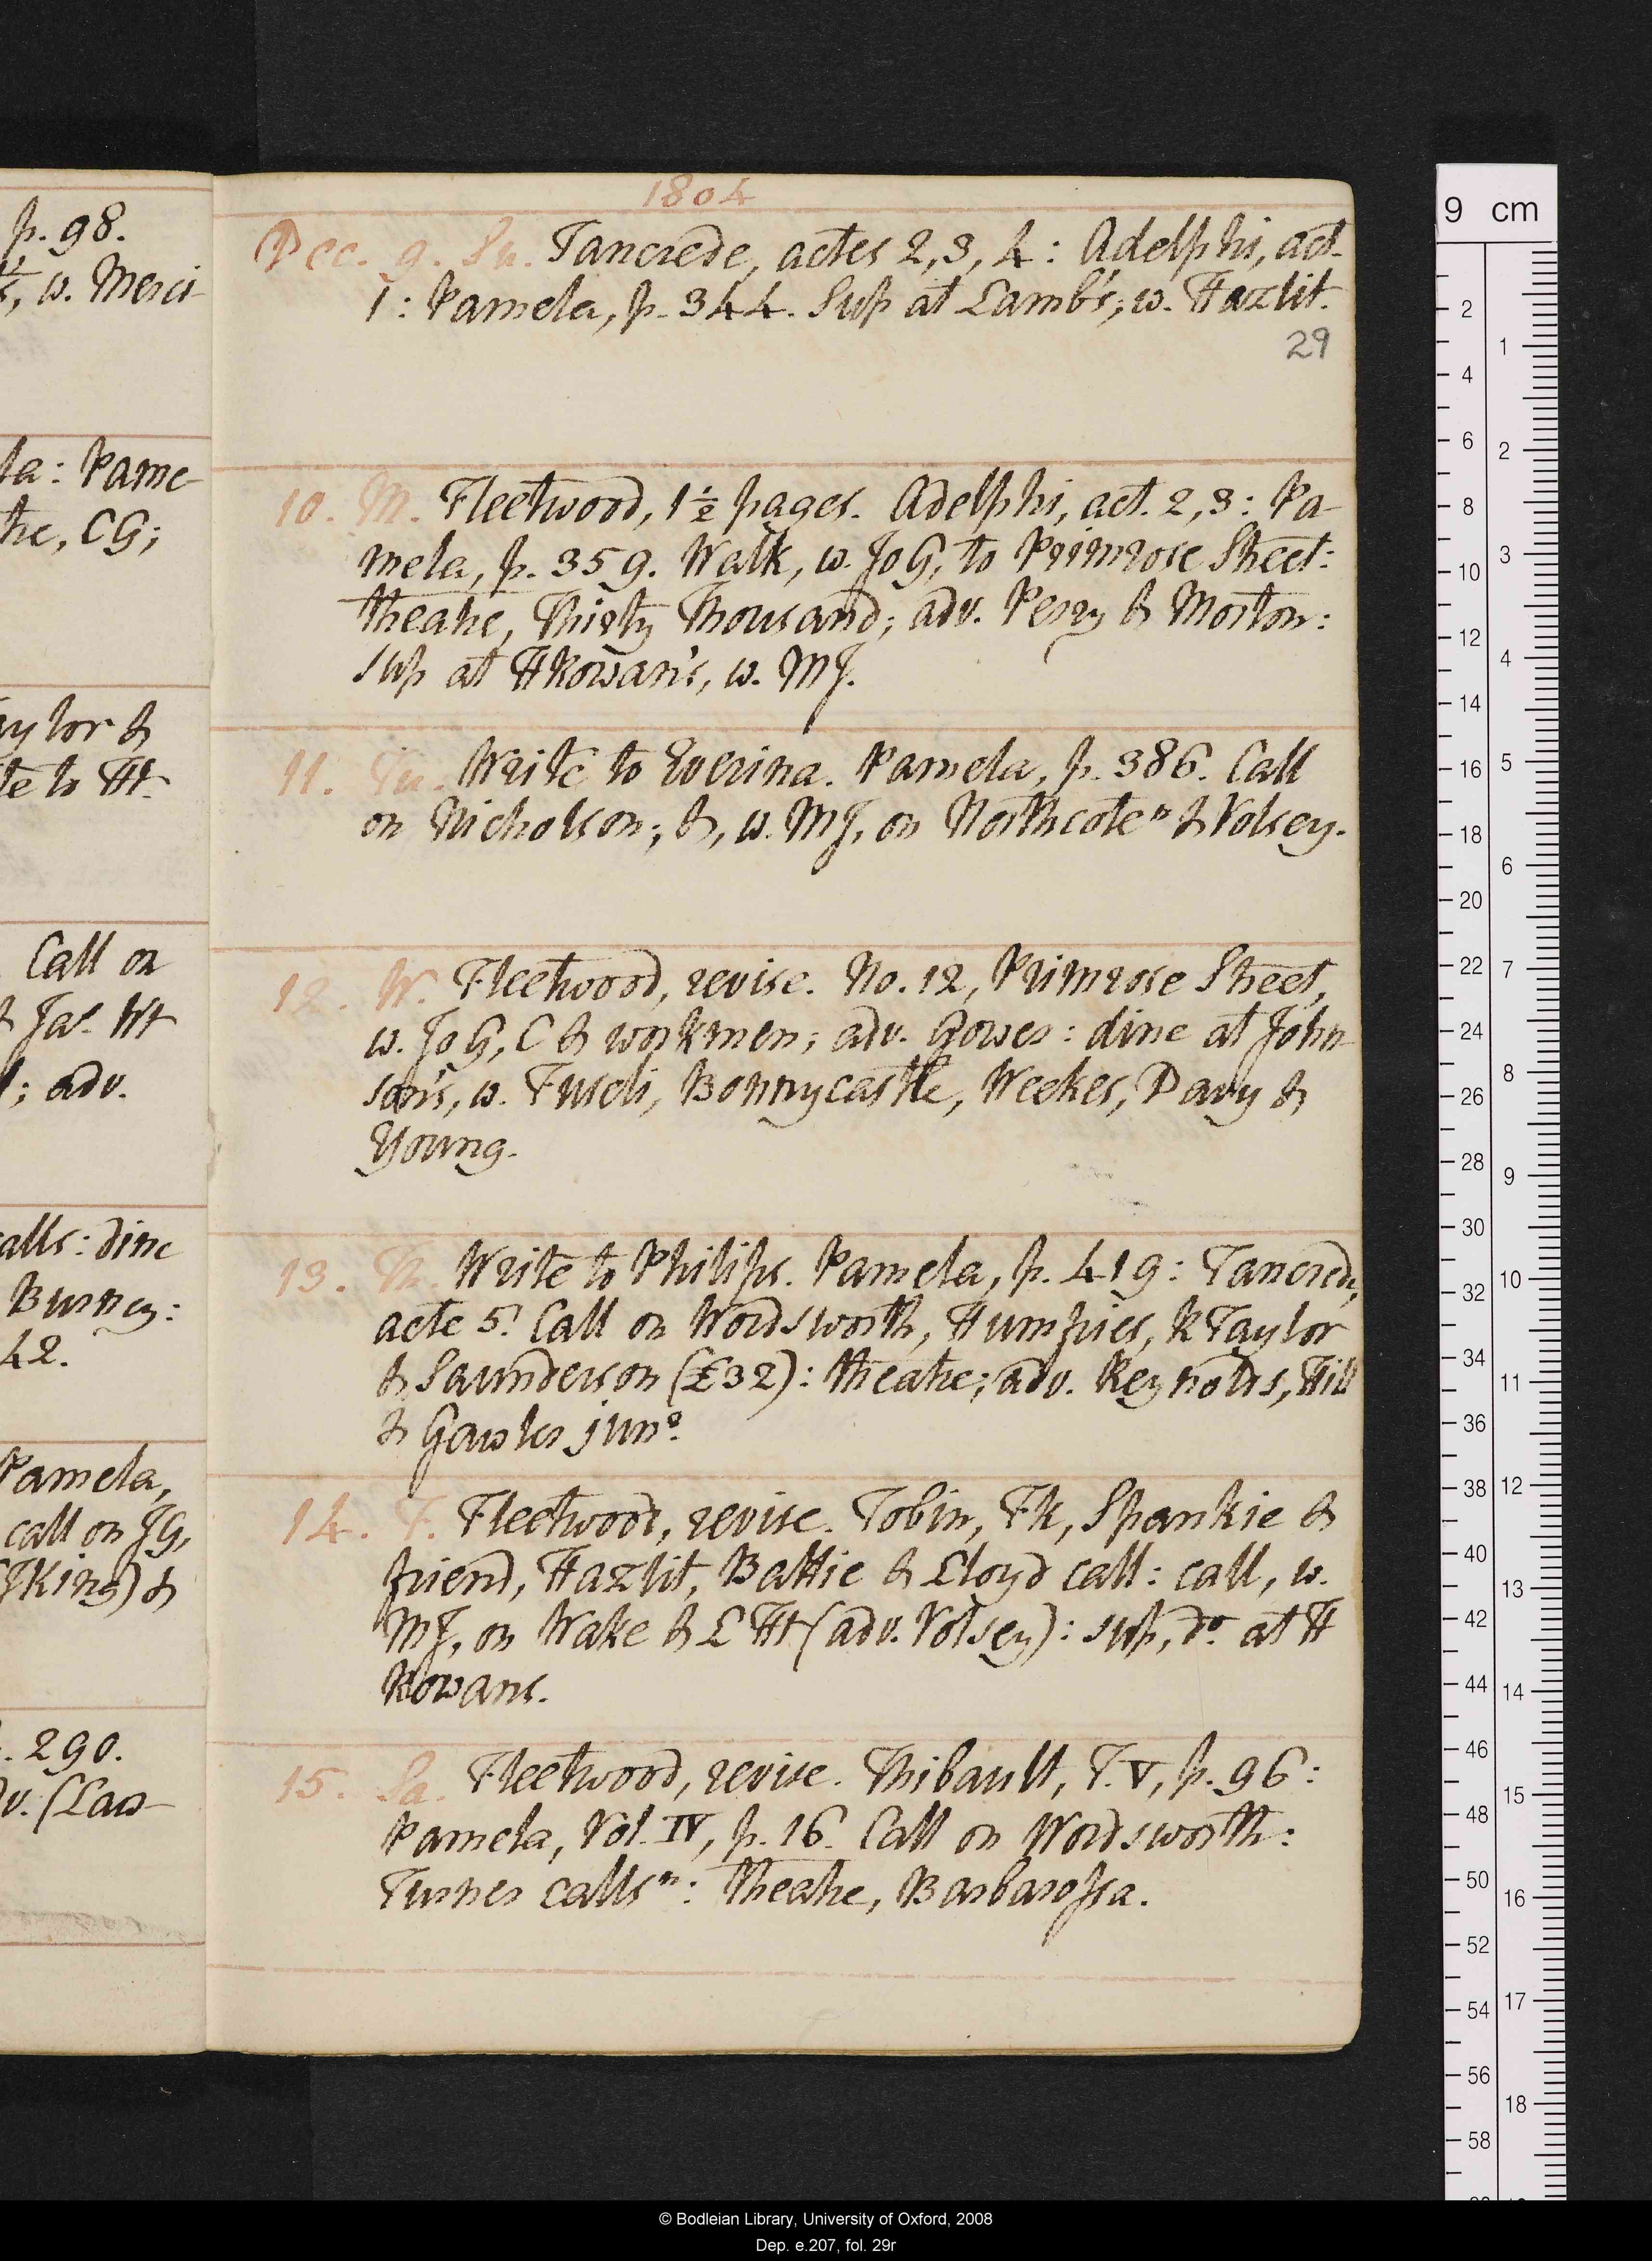 p. 98.
w. Merci-
la: Pame-
tre, CG;
aylor &
te to Ht
Call on
& Jas Wt
; adv.
alls: dine
Burney:
42.
Pamela,
call on JG,
(JKing) &
. 290.
v. (Law-
1804
Dec. 9. Su. Tancrede, actes 2, 3, 4: Adelphi, act.
1: Pamela, p. 344. Sup at Lamb's, w. Hazlit.
29
10. M. Fleetwood, 1½ pages. Adelphi, act. 2, 3: Pa-
mela, p. 359. Walk, w. JoG, to Primrose Street:
theatre, Thirty Thousand; adv. Perry & Morton:
sup at HRowan's, w. MJ.
11. Tu. Write to Everina. Pamela, p. 386. Call
on Nicholson; &, w. MJ, on Northcote n & Volsey.
12. W. Fleetwood, revise. No. 12, Primrose Street,
w. JoG, C & workmen; adv. Gower: dine at John-
son's, w. Fuseli, Bonnycastle, Weekes, Davy &
Young.
13. Th. Write to Philips. Pamela, p. 419: Tancrede,
acte 5. Call on Wordsworth, Humfries, RTaylor
& Saunderson (£32): theatre; adv. Reynolds, Hill
& Gawler junr.
14. F. Fleetwood, revise. Tobin, Fk, Spankie &
friend, Hazlit, Battie & Lloyd call: call, w.
MJ, on Wake & LHt (adv. Volsey): sup, do. at H
Rowans.
15. Sa. Fleetwood, revise. Thibault, T. V, p. 96:
Pamela, Vol. IV, p. 16. Call on Wordsworth:
Turner calls n: theatre, Barbarossa.
9 cm
2
4
6
8
10
12
14
16
18
20
22
24
26
28
30
32
34
36
38
40
42
44
46
48
50
52
54
56
58
1
2
3
4
5
6
7
8
9
10
11
12
13
14
15
16
17
18
© Bodleian Library, University of Oxford, 2008
Dep. e.207, fol. 29r